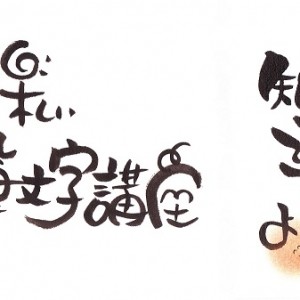 楽しい
筆文字講座
知
よ